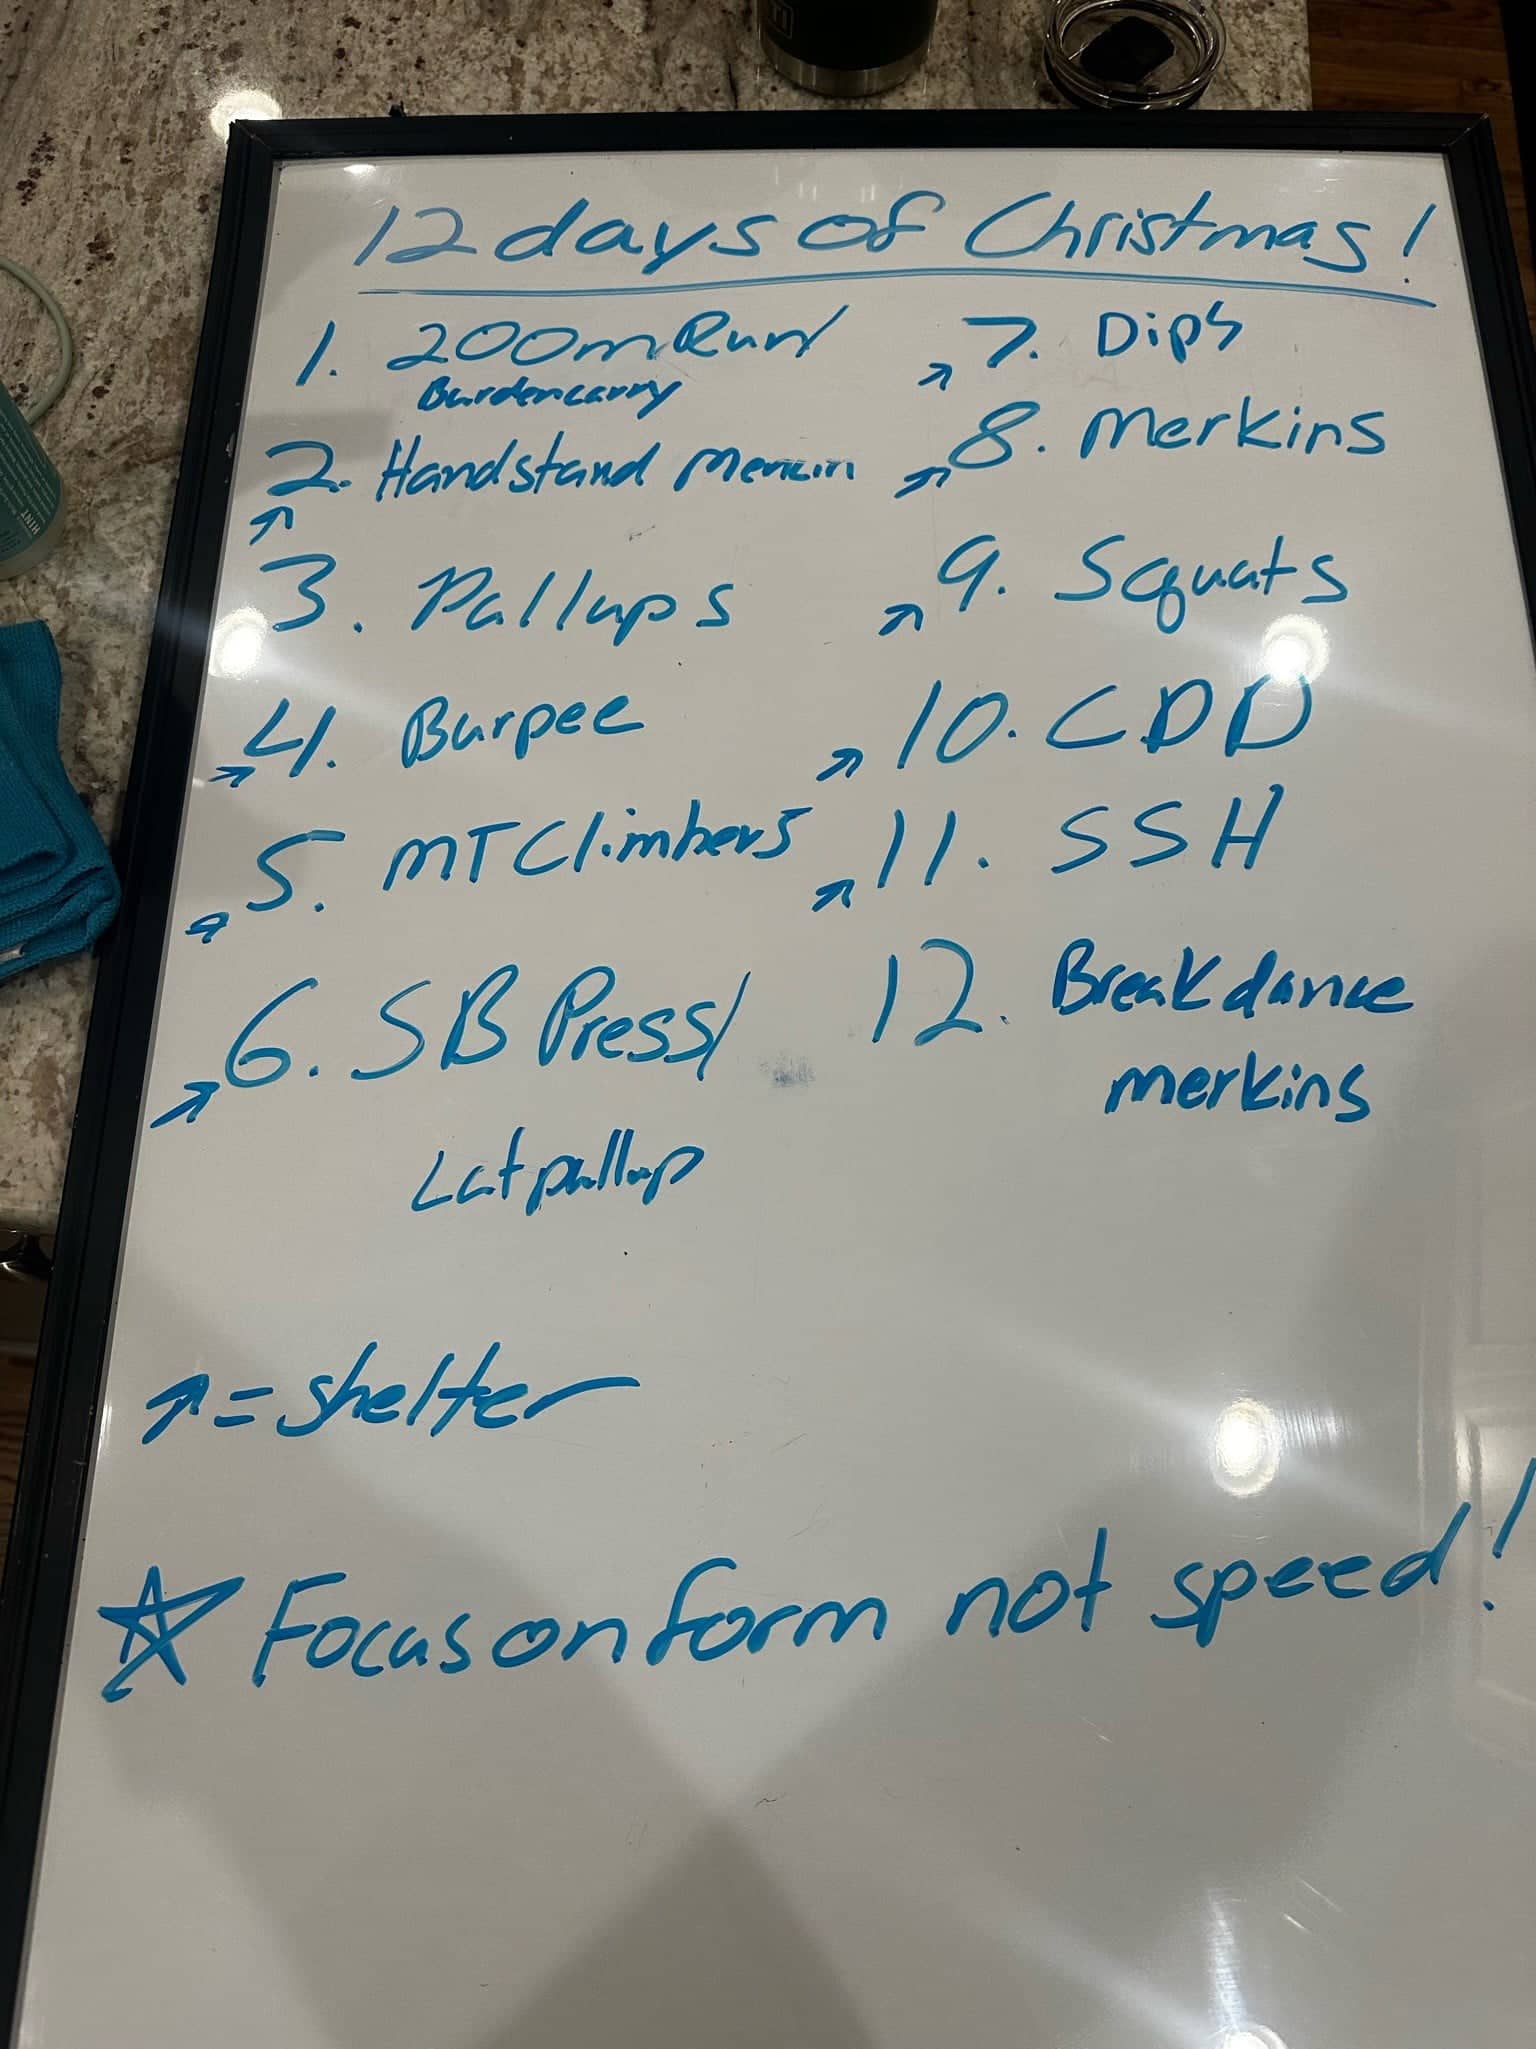 12 days of Christmas!
1. 200m Run/
Burdencarry
2. Handstand Merkin
↗
3. Pullups
↗ 4. Burpee
↗ 5. MT Climbers
↗ 6. SB Press/
Lat pullup
↗ 7. Dips
↗ 8. Merkins
↗ 9. Squats
↗ 10. CDD
↗ 11. SSH
12. Breakdance
merkins
↗ = shelter
☆ Focus on form not speed!
HINT